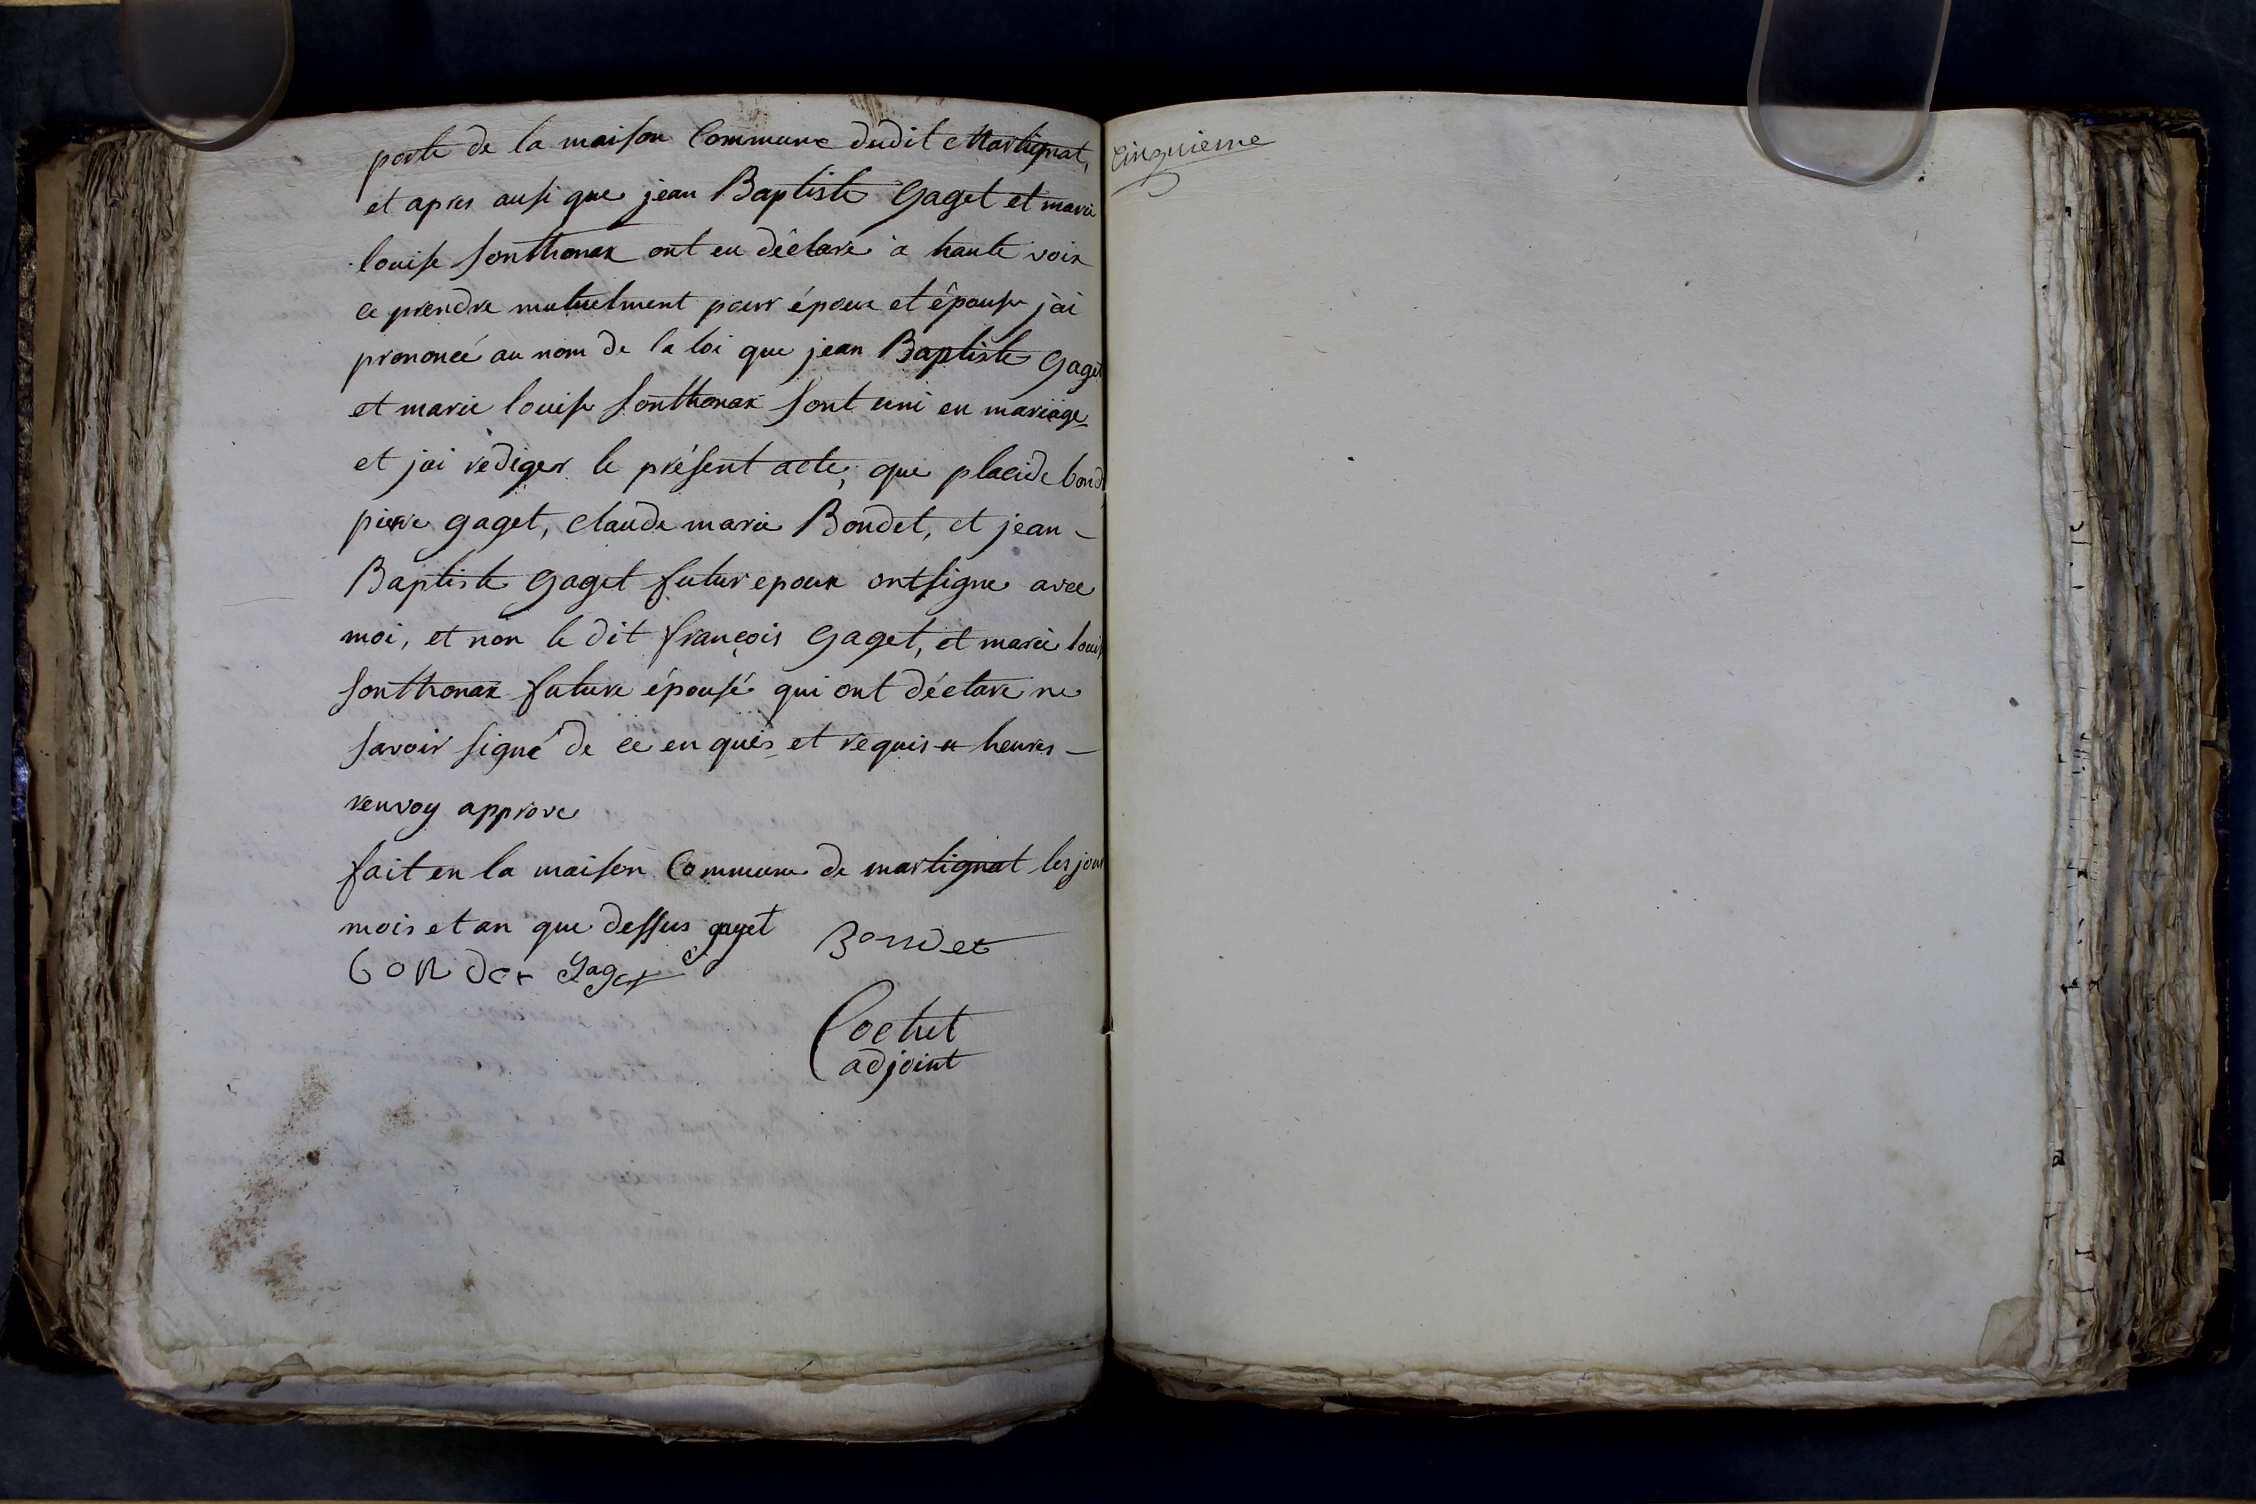 porte de la maison Commune dudit Martignat,
et apres ausi que jean Baptiste Gaget et marie
louise Sonthonax ont eu déclaré à haute voix
ce prendre mutuelment pour époux et épouse j'ai
prononcé au nom de la loi que jean Baptiste Gaget
et marie louise Sonthonax sont uni en mariage
et jai rediger le présent acte, que placide bond
pierre gaget, claude marie Bondet, et jean -
Baptiste Gaget futur epoux ont signe avec
moi, et non le dit françois Gaget, et marie louis
Sonthonax future épousé qui ont déclare ne
savoir signé de ce enquis et requis heures -
renvoy approve
fait en la maison Commune de martignat les jour
mois et an que dessus gaget
Bondet
bondet Gaget
Cochet
adjoint
Cinquieme